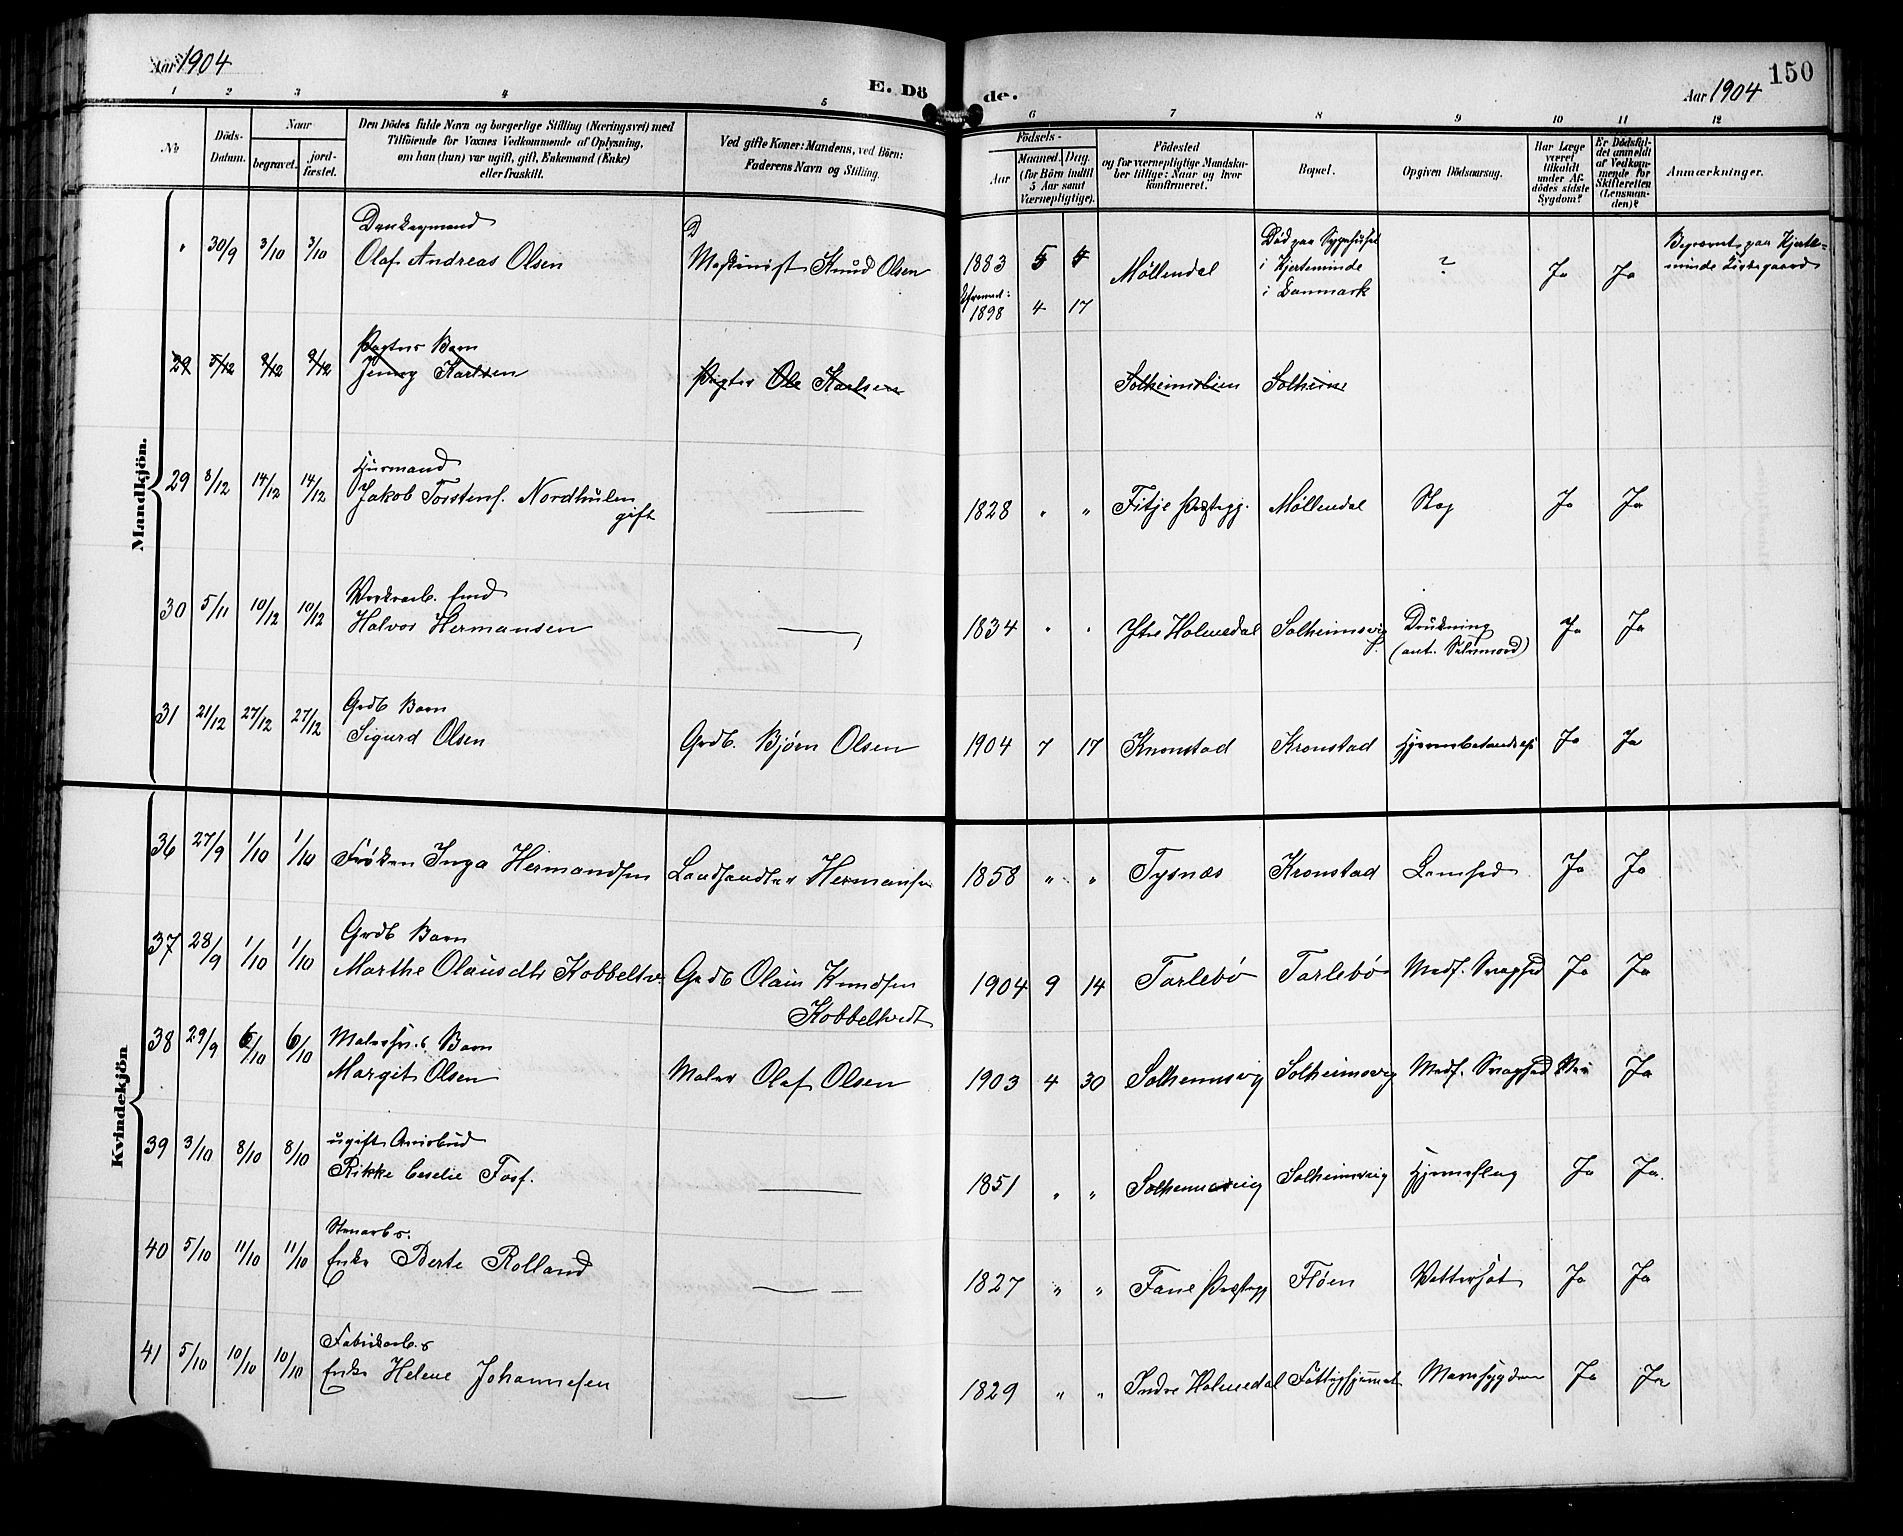 Aar 1904
E. Döde.
Aar 1904
150
1 2 3 4 5 6 7 8 9 10 11 12
No
Döds-Datum.
Naar
begravet.
jord-fæstet.
Den Dödes fulde Navn og borgerlige Stilling (Næringsvei) med
Tilföiende for Voxnes Vedkommende af Oplysning,
om han (hun) var ugift, gift, Enkemand (Enke)
eller fraskilt.
Ved gifte Koner: Mandens, ved Börn:
Faderens Navn og Stilling.
Födsels-
Aar
Maaned. Dag.
(for Börn indtil
5 Aar samt
Værnepligtige).
Födested
og for værnepligtige Mandska-
ber tillige: Naar og hvor
konfirmeret.
Bopæl.
Opgiven Dödsaarsag.
Har Læge
været
tilkaldt
under Af-
dödes sidste
Sygdom?
Er Dödsfal-
det anmeldt
af Vedkom-
mende for
Skifteretten
(Lensman-
den)?
Anmærkninger.
Mandkjön.
" 30/9 3/10 3/10
Olaf Andreas Olsen
Maskinist Knud Olsen
1883 5
1898 4 17
Møllendal
Død paa Sygehuset
i Kjerteminde
i Danmark
? Ja Ja
Begravet paa Kjerte-
minde Ligtegaard
29 5/12 9/12 9/12
Pagter Barn
Jenny Karlsen
Pagter Ole Karlsen
Solheimslien Solheim
29 8/12 14/12 14/12
Husmand
Jakob Torstens. Nordhulen
gift
1828 " " Fitje Præstegj. Møllendal Slag Ja Ja
30 5/11 10/12 10/12
Halvor Hermansen
1834 " " Ytre Holmedal Solheimsvig Drukning
(ant. Selvmord) Ja Ja
31 21/12 27/12 27/12
Grdb Barn
Sigurd Olsen
Grdb. Bjørn Olsen
1904 7 17 Kronstad Kronstad Ja Ja
Kvindekjön
36 27/9 1/10 1/10
Frøken Inga Hermandsen
Landhandler Hermansen
1858 " " Tysnæs Kronstad Lamhed Ja Ja
37 28/9 1/10 1/10
Grdb Barn
Marthe Olausdtr Kobbeltv.
Grdb Olaus Knudsen
Kobbeltvedt
1904 9 14 Tarlebø Tarlebø Medf. Svaghed Ja Ja
38 29/9 6/10 6/10
Barn
Margit Olsen
Maler Olaf Olsen
1903 4 30 Solheimsvig Solheimsvig Medf. Svaghed Nei Ja
39 3/10 8/10 8/10
ugift Avisbud
Rikke Cecelie Foss.
1851 " " Solheimsvig Solheimsvig Hjerneslag Ja Ja.
40 5/10 11/10 11/10
Stenarb s.
Enke Berte Rolland
1827 " " Fane Præstegj Fløen Vattersot Ja Ja
41 5/10 10/10 10/10
Fabrikarb. s
Enke Helene Johannesen
1829 " " Indre Holmedal Fattighjemmet Mavesygdom Ja Ja